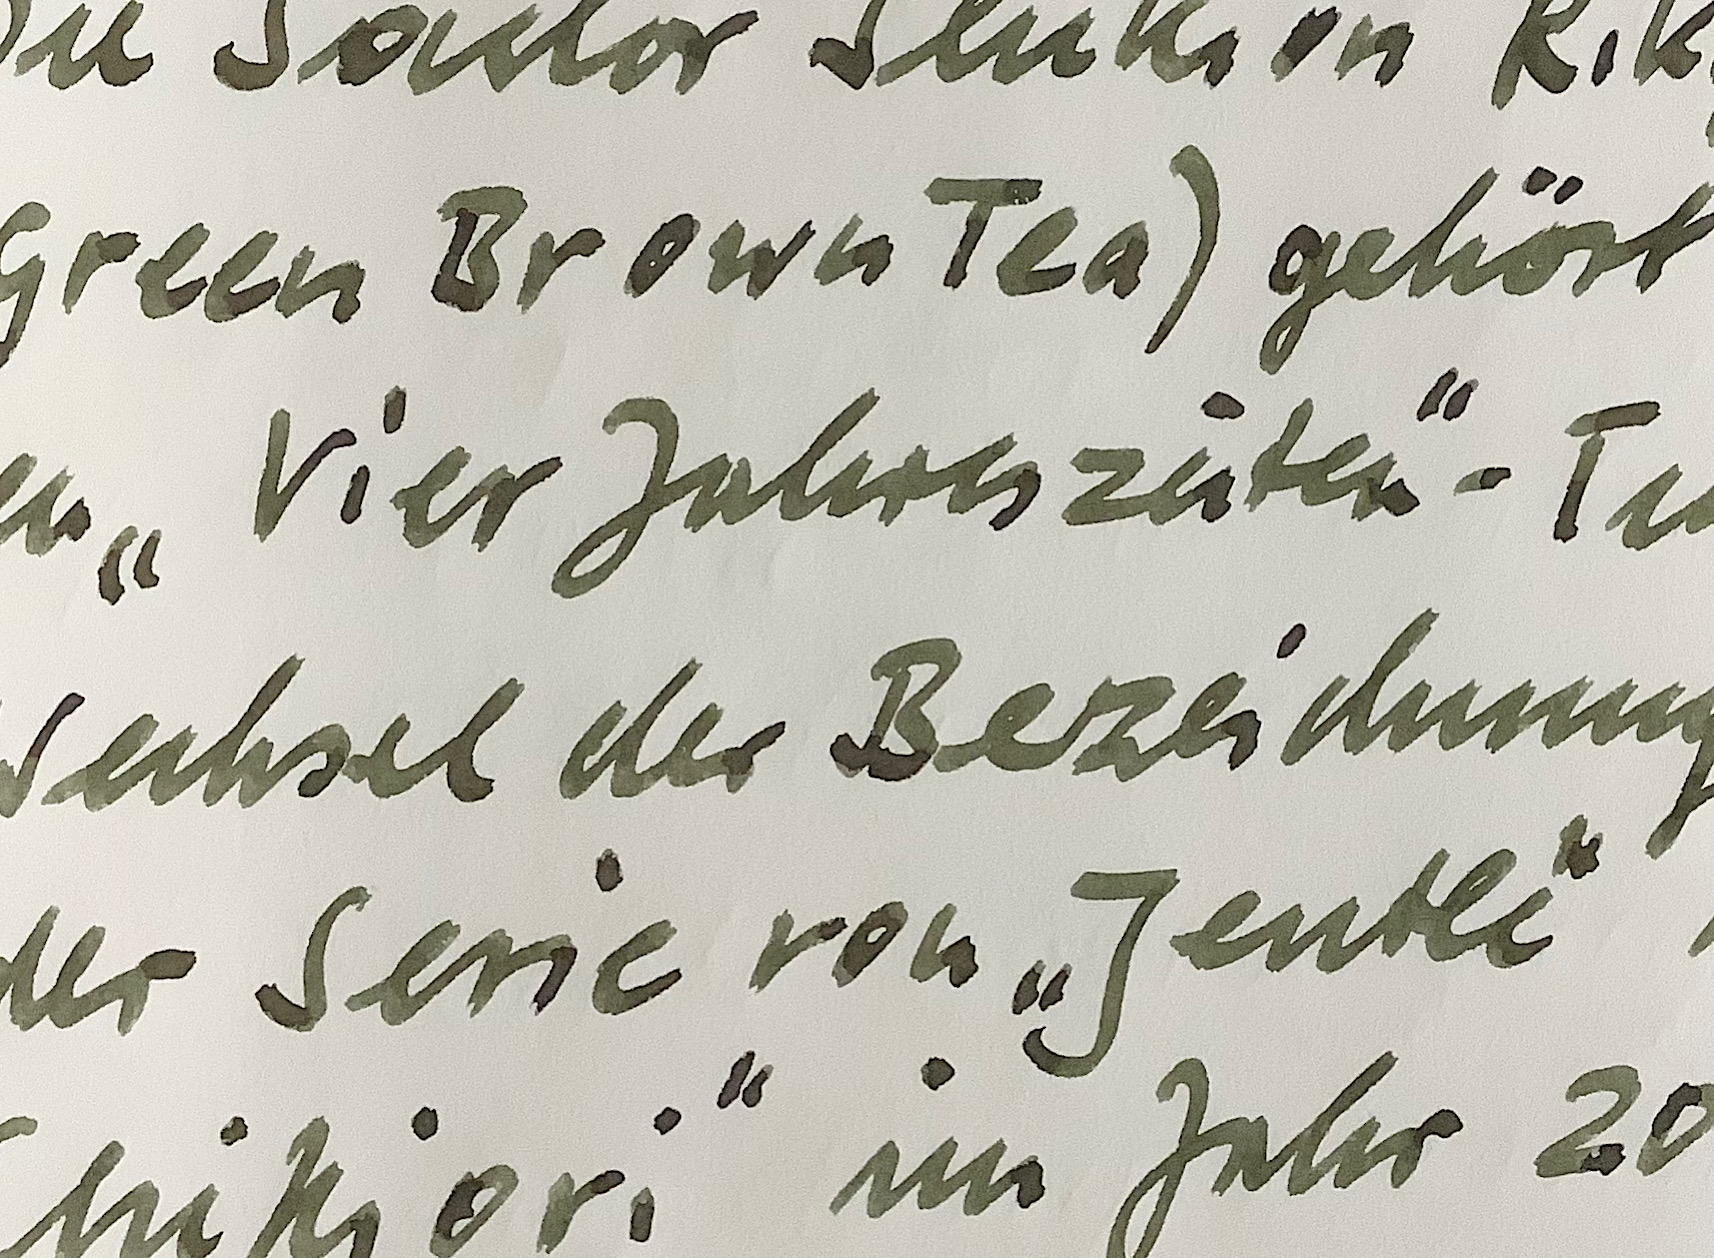 Die Sailor Shikiori Rik
Green Brown Tea) gehört
en „Vier Jahreszeiten“-Tin
Wechsel der Bezeichnung
der Serie von „Jentle“
Shikiori“ im Jahr 20